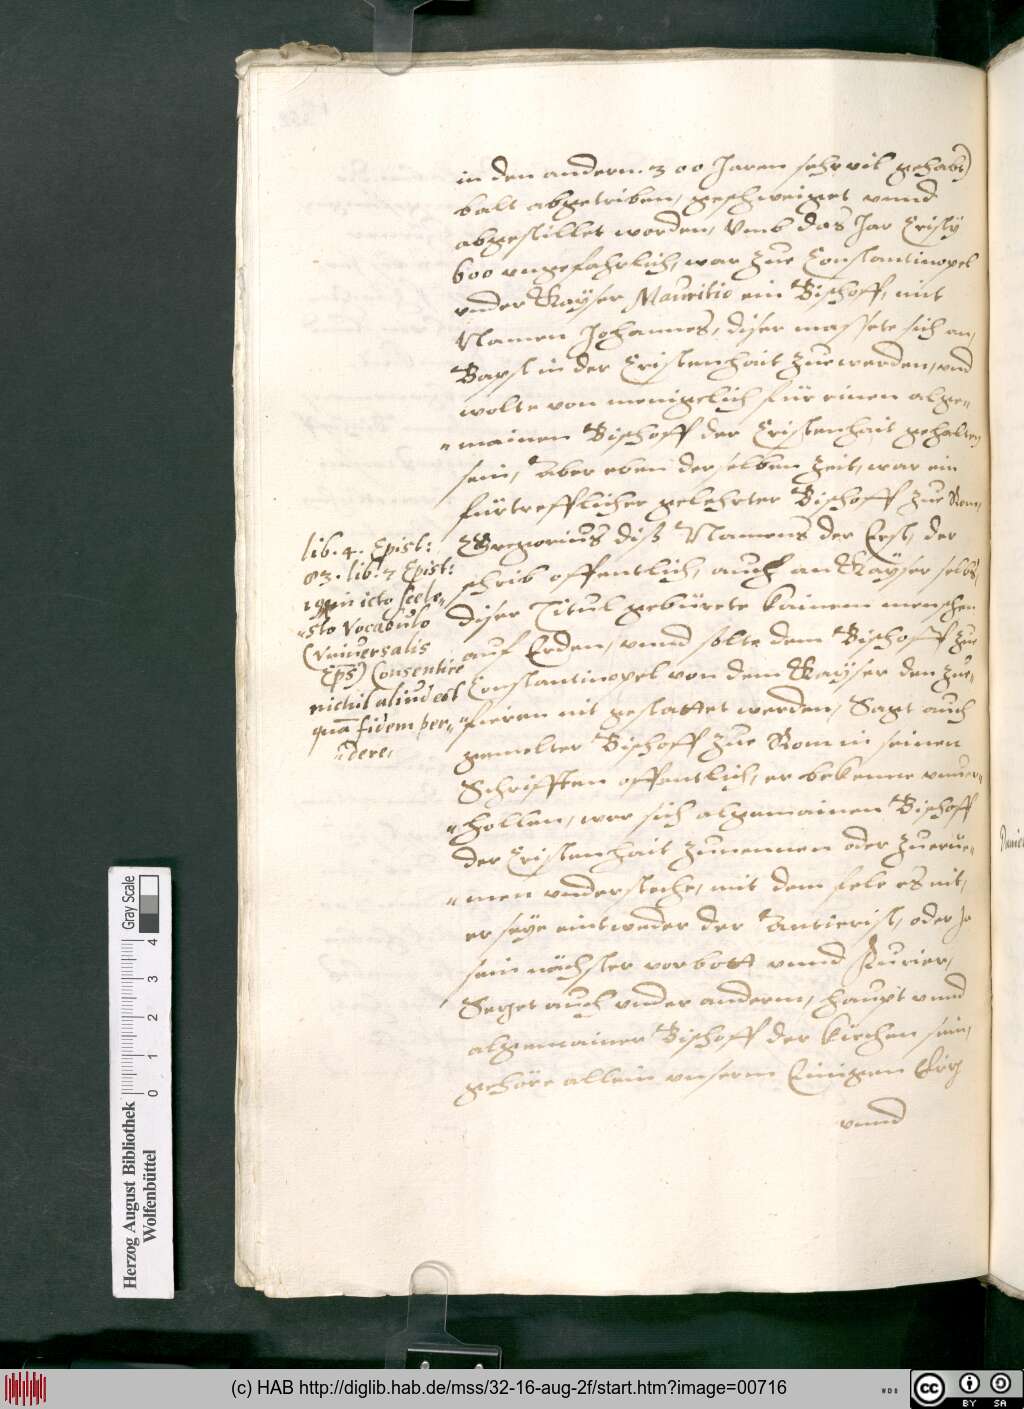 in den andern 300 Jaren sehr vil gehabt)
balt abgetriben, geschweiget vnnd
abgestillet worden, Vmb das Jar Cristÿ
600 vngefahrlich, war zue Constantinopel
vnder Kaÿser Mauritio ein Bischoff, mit
Namen Johannes, diser massete sich an,
Bapst in der Cristenhait zuewerden, vnd
wolte von menigclich für einen alge-
-mainen Bischoff der Cristenhait gehalten
sein, Aber eben derselben Zeit, war ein
fürtrefflicher gelehrter Bischoff zue Rom,
Gregorius diß Namens der Erst, der
schrib offentlich, auch an Kaÿser selbs,
diser Titul gebürete kainem menschen
auf Erden, vnnd solte dem Bischoff zue
Constantinopel von dem Kaÿser den zue-
-fieren nit gestattet werden, Sagt auch
gemelter Bischoff zue Rom in seinen
Schrifften offentlich, er bekenne vnuer-
-hollen, wer sich algemainen Bischoff
der Cristenhait zunennen oder zuerüe-
-men vndersteche, mit dem fele es nit,
er seÿe eintweder der Anticrist, oder Je
sein nächster vorbott vnnd Kurier,
Setzet auch vnder anderm, haupt vnnd
algemainer Bischoff der Kirchen sein,
gehöre allein vnserm Einigen
vnnd
lib. 4. Epist:
83. lib. 7 Epist:
in isto scele-
-sto Vocabulo
(Vniuersalis
Eps) Consentire
nichil aliud est
quã fidem per-
-dere,
Herzog August Bibliothek
Wolfenbüttel
0 1 2 3 4
Gray Scale
(c) HAB http://diglib.hab.de/mss/32-16-aug-2f/start.htm?image=00716
WDB
cc BY SA